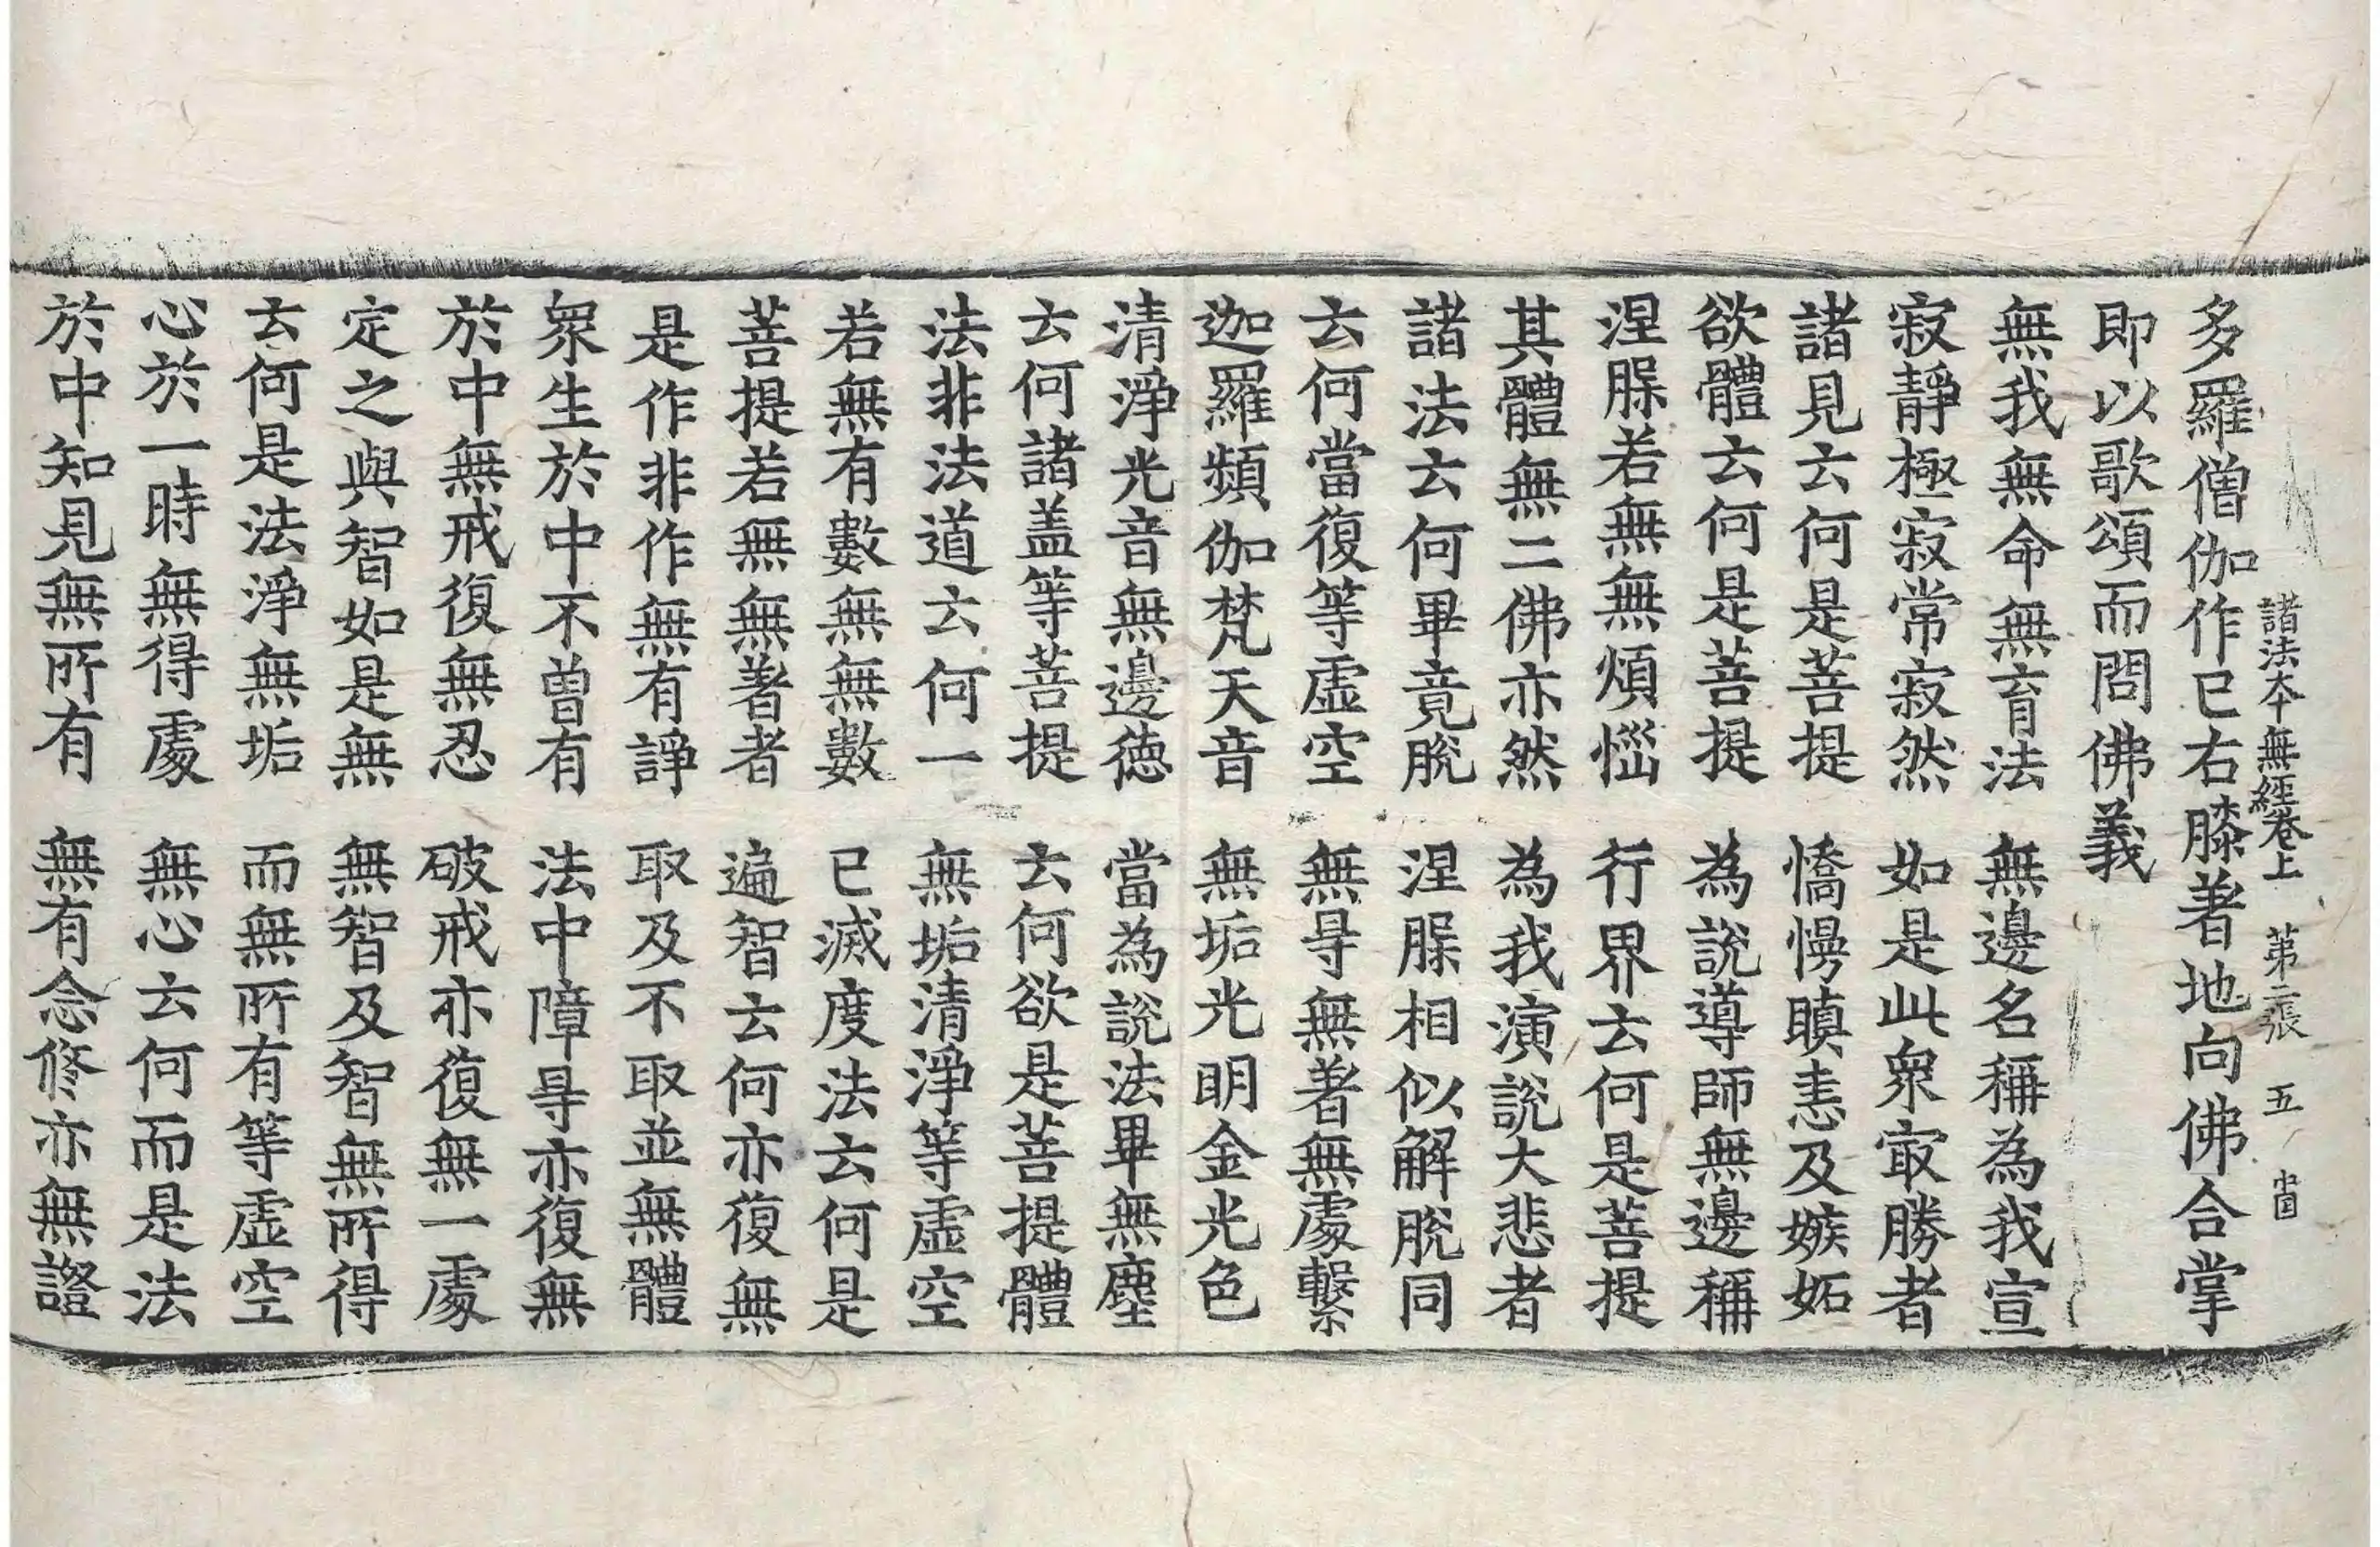 諸法本無經卷上　第二張　五　岀囯
多羅僧伽作已右膝著地向佛合掌
即以歌頌而問佛義
無我無命無育法　無邊名稱為我宣
寂靜極寂常寂然　如是此衆㝡勝者
諸見云何是菩提　憍慢瞋恚及嫉妬
欲體云何是菩提　為說導師無邊稱
涅腺若無無煩惱　行界云何是菩提
其體無二佛亦然　為我演說大悲者
諸法云何畢竟脫　涅腺相似解脫同
云何當復等虛空　無㝵無著無處繫
迦羅頻伽梵天音　無垢光明金光色
清淨光音無邊德　當為說法畢無塵
云何諸盖等菩提　云何欲是菩提體
法非法道云何一　無垢清淨等虛空
若無有數無無數　已滅度法云何是
菩提若無無著者　遍智云何亦復無
是作非作無有諍　取及不取並無體
衆生於中不曾有　法中障㝵亦復無
於中無戒復無忍　破戒亦復無一處
定之與智如是無　無智及智無所得
云何是法淨無垢　而無所有等虛空
心於一時無得處　無心云何而是法
於中知見無所有　無有念修亦無證